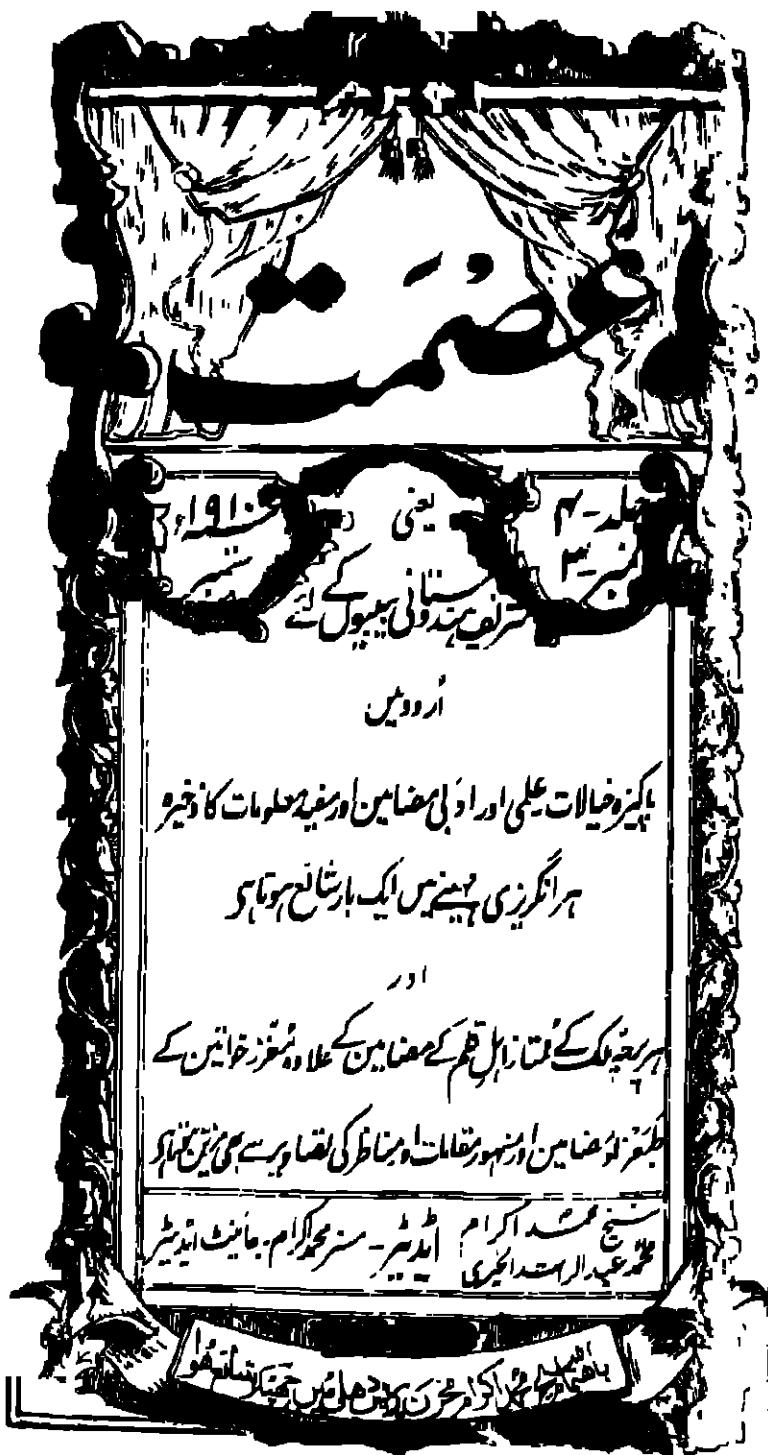 عصمت
جلد - ۴
نمبر - ۳
یعنی
۱۹۱۰ء
ستمبر
شریف ہندوستانی بیبیوں کے لئے
اُردو میں
پاکیزہ خیالات علمی اور ادبی مضامین اور مفید معلومات کا ذخیرہ
ہر انگریزی مہینے میں ایک بار شائع ہوتا ہی
اور
ہر پرچہ ملک کے ممتاز اہلِ قلم کے مضامین کے علاوہ معزز خواتین کے
مضامین اور مشہور مقامات اور مناظر کی تصاویر سے بھی مزین ہوتا ہی
شیخ محمد اکرام
محمد عبدالراشد الخیری
ایڈیٹر - مسز محمد اکرام - جائینٹ ایڈیٹر
باہتمام شیخ محمد اکرام مخزن پریس دہلی میں چھپکر شائع ہُوا